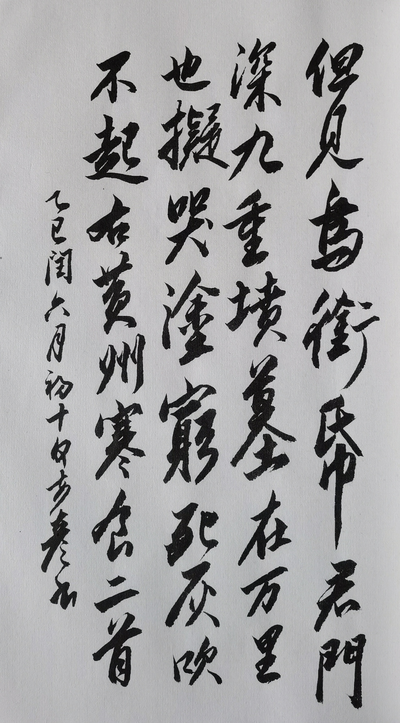 但見烏銜帋君門
深九重墳墓在万里
也擬哭塗窮死灰吹
不起右黃州寒食二首
乙巳閏六月初十日